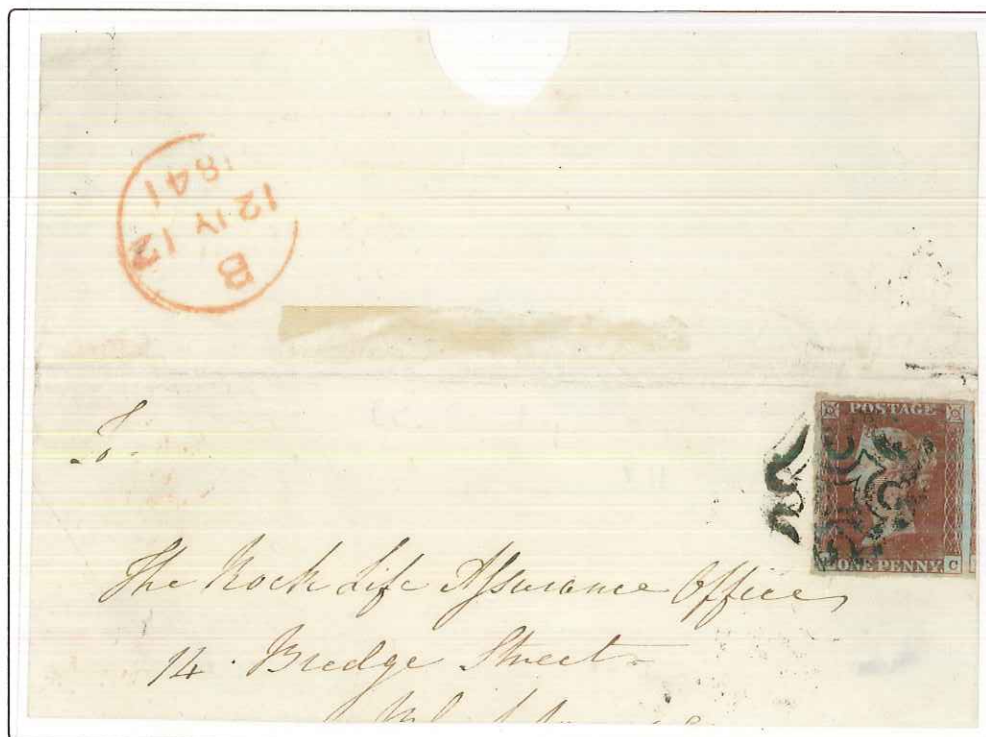 B
12 JY 12
1841
To
POSTAGE
ONE PENNY
C
The Rock Life Assurance Office
14. Bridge Street